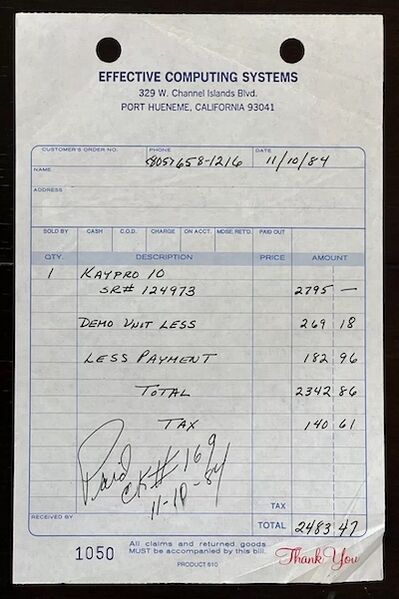 EFFECTIVE COMPUTING SYSTEMS
329 W. Channel Islands Blvd.
PORT HUENEME, CALIFORNIA 93041
CUSTOMER'S ORDER NO. PHONE (805) 658-1216 DATE 11/10/84
NAME
ADDRESS
SOLD BY CASH C.O.D. CHARGE ON ACCT. MDSE. RET'D. PAID OUT
QTY. DESCRIPTION PRICE AMOUNT
1 KAYPRO 10
SR# 124973 2795 —
DEMO UNIT LESS 269 18
LESS PAYMENT 182 96
TOTAL 2342 86
TAX 140 61
Paid
CK# 169
11-10-84
TAX
RECEIVED BY
TOTAL 2483 47
1050
All claims and returned goods
MUST be accompanied by this bill.
Thank You
PRODUCT 610